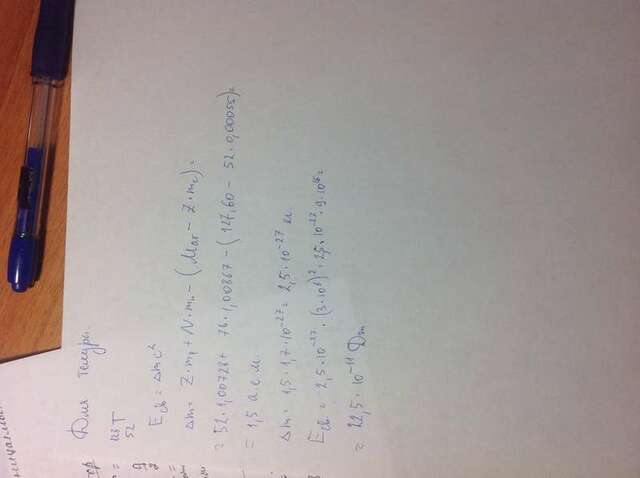 Для теллура
128 T
52
Eсв = Δmc²
Δm = Z·mp + N·mn − (Mат − Z·me) =
= 52·1,00728 + 76·1,00867 − (127,60 − 52·0,00055) =
= 1,5 а.е.м.
Δm = 1,5·1,7·10⁻²⁷ = 2,5·10⁻²⁷ кг
Eсв = 2,5·10⁻²⁷·(3·10⁸)² = 2,5·10⁻²⁷·9·10¹⁶ =
= 22,5·10⁻¹¹ Дж